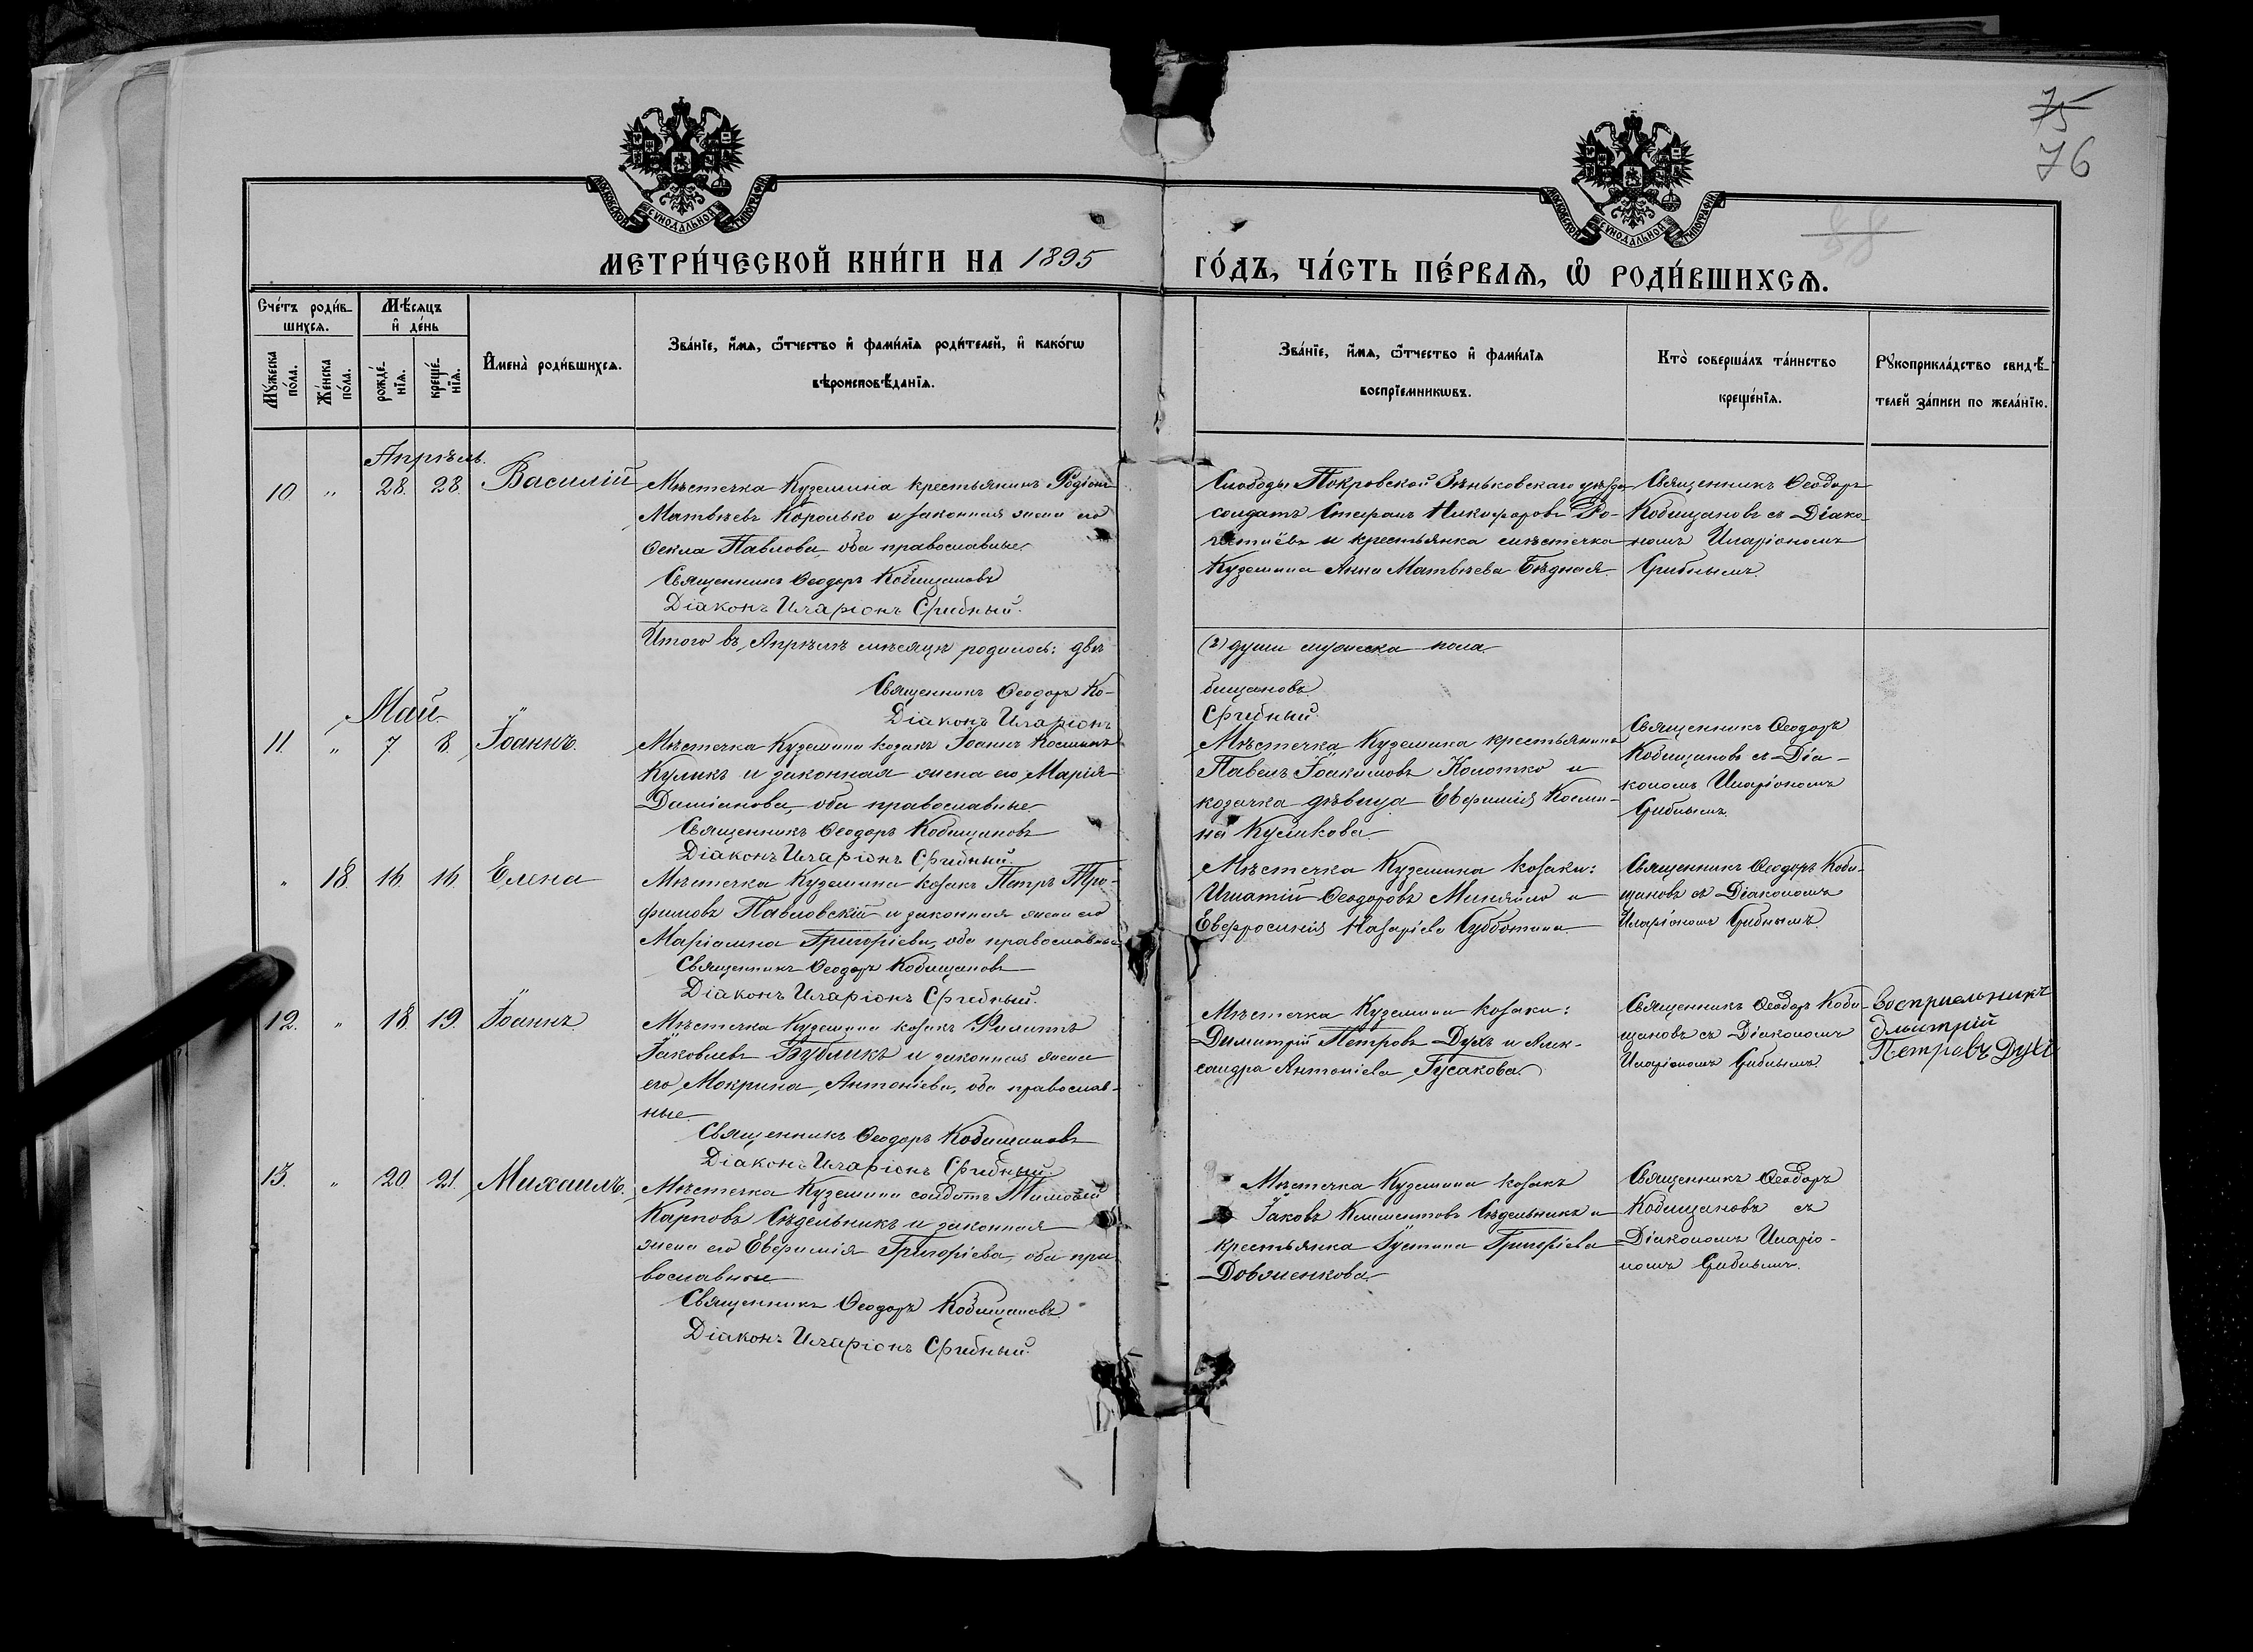 75
76
38
МОСКОВСКОЙ СѴНОДАЛЬНОЙ ТИПОГРАФІИ
МОСКОВСКОЙ СѴНОДАЛЬНОЙ ТИПОГРАФІИ
МЕТРИ́ЧЕСКОЙ КНИ́ГИ НА 1895
ГО́ДЪ, ЧА́СТЬ ПЕ́РВАѦ, Ѡ҃ РОДИ́ВШИХСѦ.
Сче́тъ роди́в-
шихсѧ.
Мѣ́сѧцъ
и҆ де́нь
Мꙋ́жеска
по́ла.
Же́нска
по́ла.
рожде́-
нїѧ.
креще́-
нїѧ.
И҆мена̀ роди́вшихсѧ.
Зва́нїе, и҆́мѧ, ѻ҆́тчество и҆ фами́лїѧ роди́телей, и҆ како́гѡ
вѣроисповѣ́данїѧ.
Зва́нїе, и҆́мѧ, ѻ҆́тчество и҆ фами́лїѧ
воспрїе́мникѡвъ.
Кто̀ соверша́лъ та́инство
креще́нїѧ.
Рꙋкоприкла́дство свидѣ́-
телей за́писи по жела́нїю.
Апрѣль.
10. " 28. 28. Василій
Мѣстечка Куземина крестьянинъ Родіонъ
Матвѣевъ Королько и законная жена его
Ѳекла Павлова, оба православные
Священникъ Ѳеодоръ Кобищановъ
Діаконъ Иларіонъ Срибный.
Слободы Покровской Зѣньковскаго уѣзда
солдатъ Стефанъ Никифоровъ
и крестьянка мѣстечка
Куземина Анна Матвѣева Бѣдная.
Священникъ Ѳеодоръ
Кобищановъ съ Діако-
номъ Иларіономъ
Срибнымъ.
Итого въ Апрѣлѣ мѣсяцѣ родилось: двѣ
(2) души мужеска пола.
Священникъ Ѳеодоръ Ко-
бищановъ
Діаконъ Иларіонъ
Срибный.
Май.
11. " 7 8. Іоаннъ.
Мѣстечка Куземина козакъ Іоаннъ Косминъ
Куликъ и законная жена его Марія
Даміанова, оба православные
Священникъ Ѳеодоръ Кобищановъ
Діаконъ Иларіонъ Срибный.
Мѣстечка Куземина крестьянинъ
Павелъ Іоакимовъ Колотко и
козачка дѣвица Евфимія Косми-
на Куликова.
Священникъ Ѳеодоръ
Кобищановъ съ Діа-
кономъ Иларіономъ
Срибнымъ.
" 18. 16. 16. Елена
Мѣстечка Куземина козакъ Петръ Тро-
фимовъ Павловскій и законная жена его
Маріамна Григоріева, оба православные
Священникъ Ѳеодоръ Кобищановъ
Діаконъ Иларіонъ Срибный.
Мѣстечка Куземина козаки:
Игнатій Ѳеодоровъ Миняйло и
Евфросинія Назаріева Субботина.
Священникъ Ѳеодоръ Коби-
щановъ съ Діакономъ
Иларіономъ Срибнымъ.
12. " 18. 19. Іоаннъ
Мѣстечка Куземина козакъ Филиппъ
Іаковлевъ Бубликъ и законная жена
его Мокрина Антоніева, оба православ-
ные.
Священникъ Ѳеодоръ Кобищановъ
Діаконъ Иларіонъ Срибный.
Мѣстечка Куземина козаки:
Димитрій Петровъ Духъ и Алек-
сандра Антоніева Гусакова.
Священникъ Ѳеодоръ Коби-
щановъ съ Діакономъ
Иларіономъ Срибнымъ.
Воспріемникъ
Дмитрій
Петровъ Духъ
13. " 20. 21. Михаилъ.
Мѣстечка Куземина солдатъ Тимофей
Карповъ Сѣдельникъ и законная
жена его Евфимія Григоріева, оба пра-
вославные
Священникъ Ѳеодоръ Кобищановъ
Діаконъ Иларіонъ Срибный.
Мѣстечка Куземина козакъ
Іаковъ Климентовъ Сѣдельникъ и
крестьянка Іустина Григоріева
Довженкова.
Священникъ Ѳеодоръ
Кобищановъ съ
Діакономъ Иларіо-
номъ Срибнымъ.